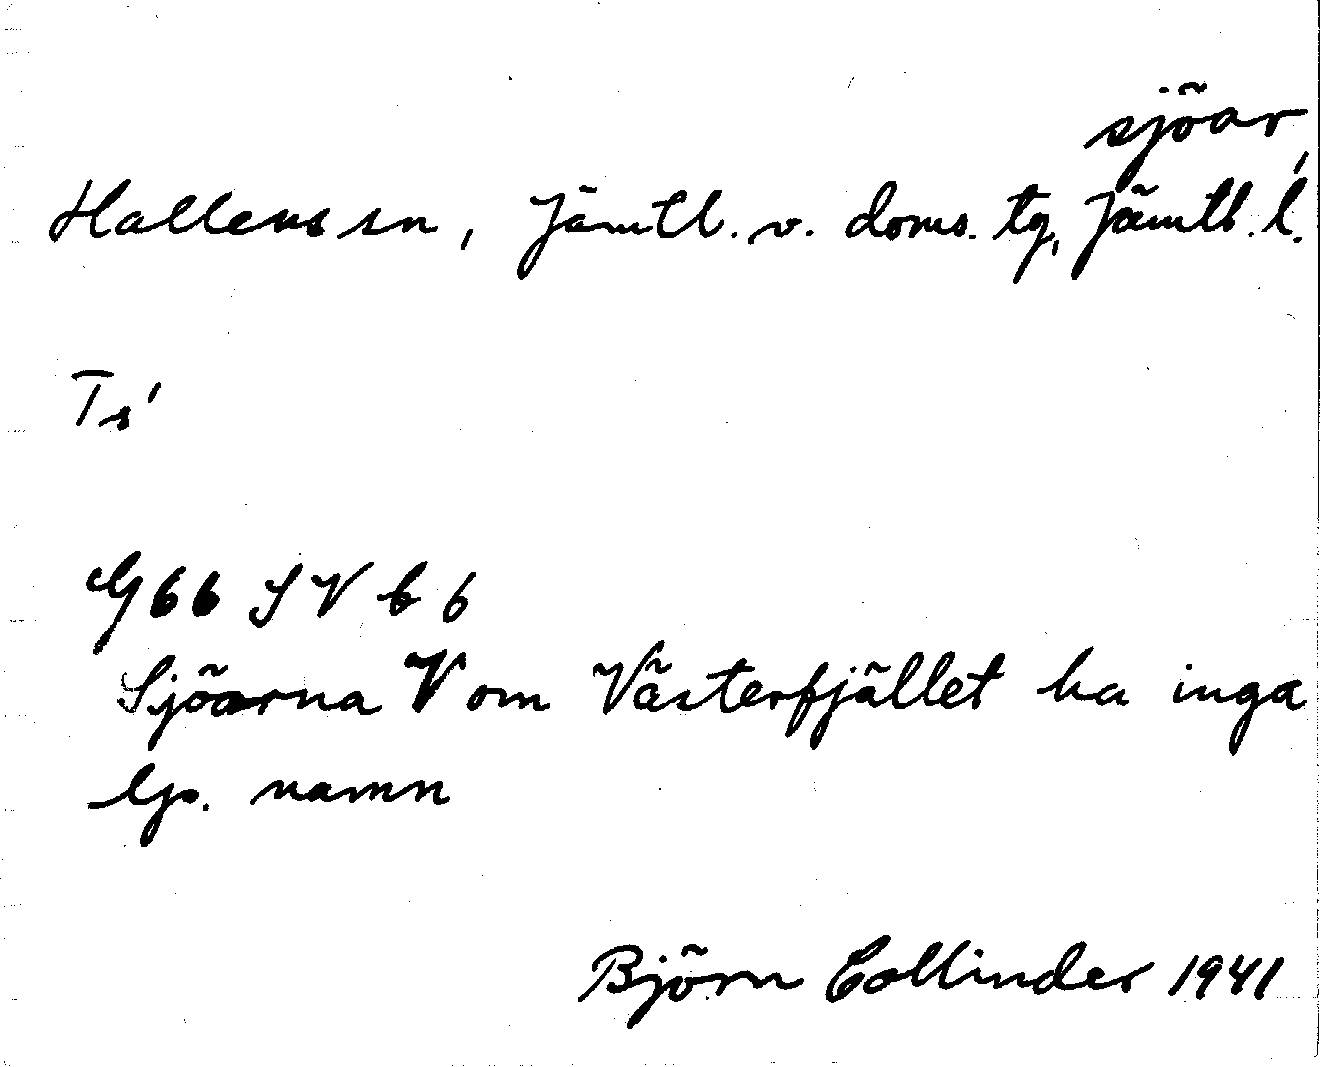 sjöar,
Hallens sn, Jämtl. v. doms. tg, Jämtl. l.
Ts'
G66 SV b 6
Sjöarna V om Västerfjället ha inga
lp. namn
Björn Collinder 1941